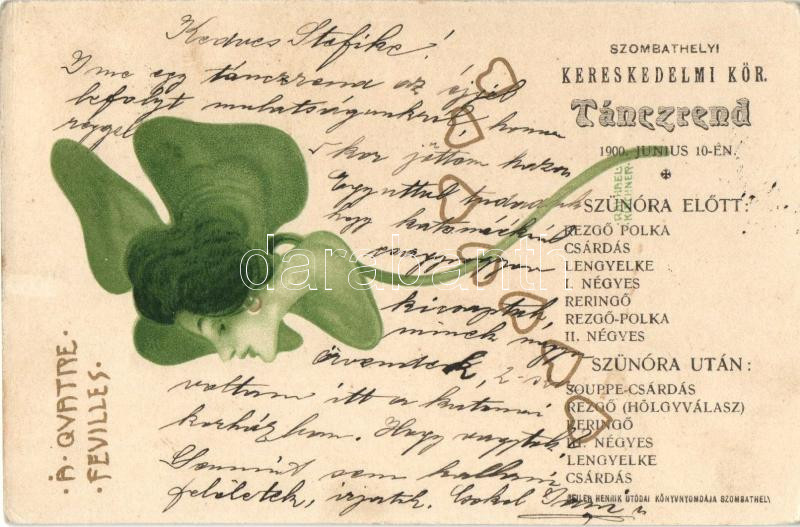 Kedves Stefike!
Ime egy tánczrend az éjjel
befolyt mulatságunkról, honnan
reggel
5 kor jöttem haza.
Egyuttal tudatlak
hogy katonáéktól
kicsaptak,
minek nagyon
örvendek, 2
voltam itt a katonai
korházban. Hogy vagytok
Semmit sem hallani
felőletek, irjatok. Csókol
SZOMBATHELYI
KERESKEDELMI KÖR.
Tánczrend
1900. JUNIUS 10-ÉN.
SZÜNÓRA ELŐTT:
REZGŐ POLKA
CSÁRDÁS
LENGYELKE
I. NÉGYES
RERINGŐ
REZGŐ-POLKA
II. NÉGYES
SZÜNÓRA UTÁN:
SOUPPE-CSÁRDÁS
REZGŐ (HÖLGYVÁLASZ)
KERINGŐ
III. NÉGYES
LENGYELKE
CSÁRDÁS
SEILER HENRIK UTÓDAI KÖNYVNYOMDÁJA SZOMBATHELY
RAPHAEL
KIRCHNER
·À·QVATRE·
·FEVILLES·
darabanth